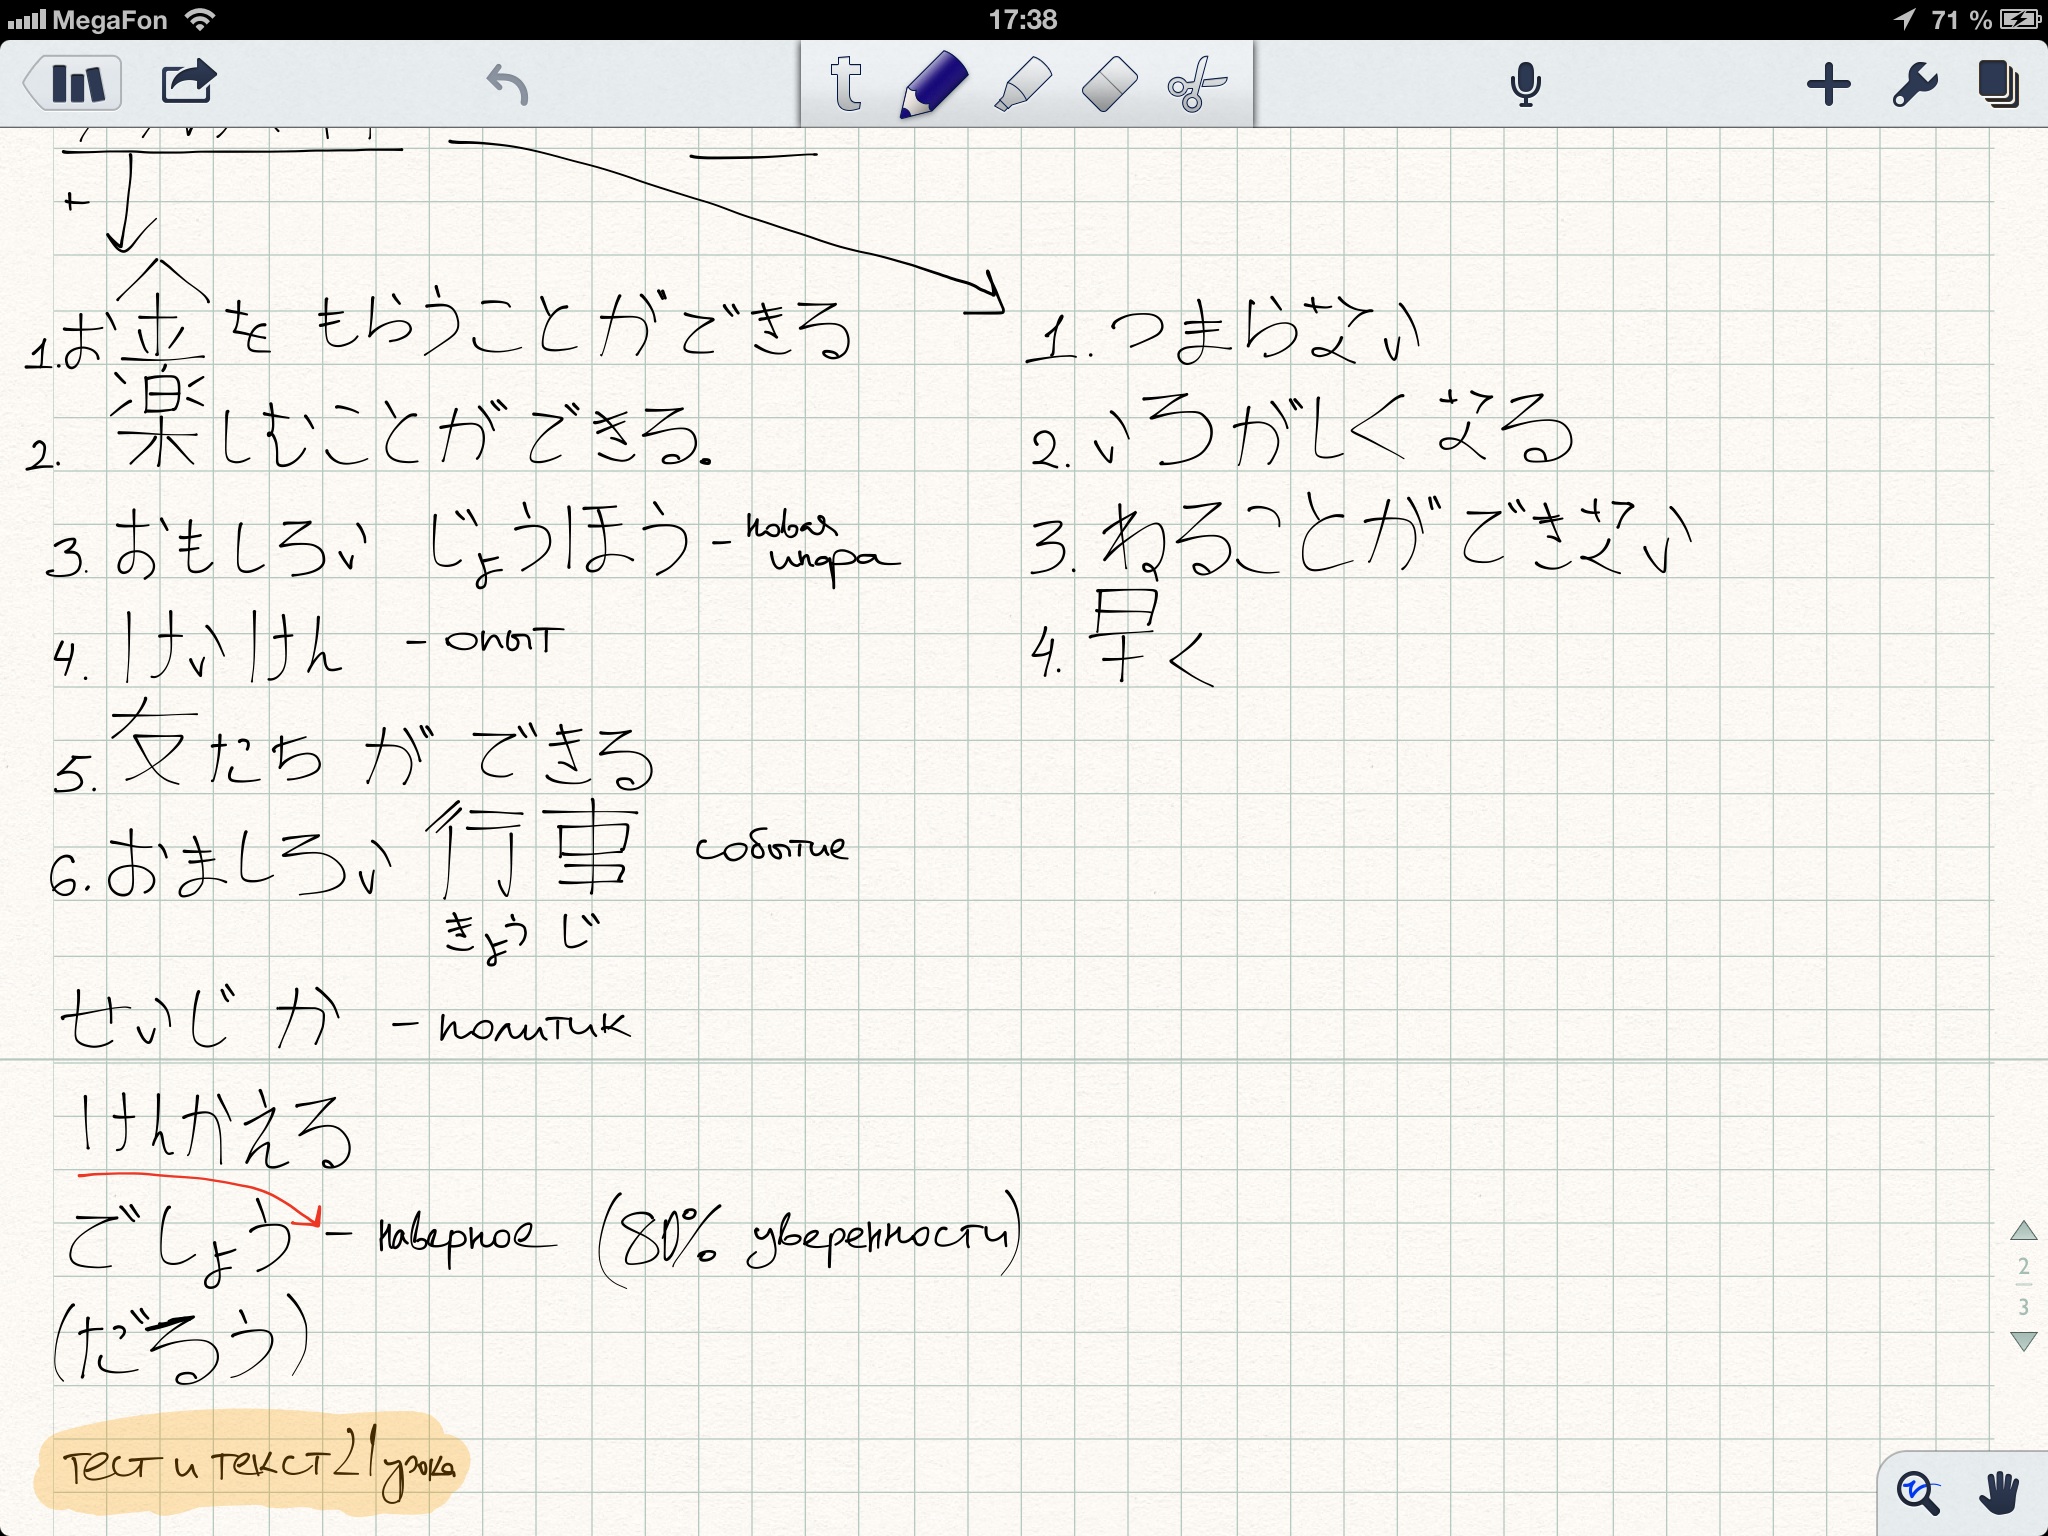 MegaFon 17:38 71 %
t
+
1. お金を もらうことができる
2. 楽しむことができる.
3. おもしろい じょうほう - новая инфа
4. けいけん - опыт
5. 友たち が できる
6. おましろい 行事 событие
きょうじ
1. つまらない
2. いろがしくなる
3. ねることができない
4. 早く
せいじか - политик
けんかえる
でしょう - наверное (80% уверенности)
(だろう)
тест и текст 21 урока
2
3